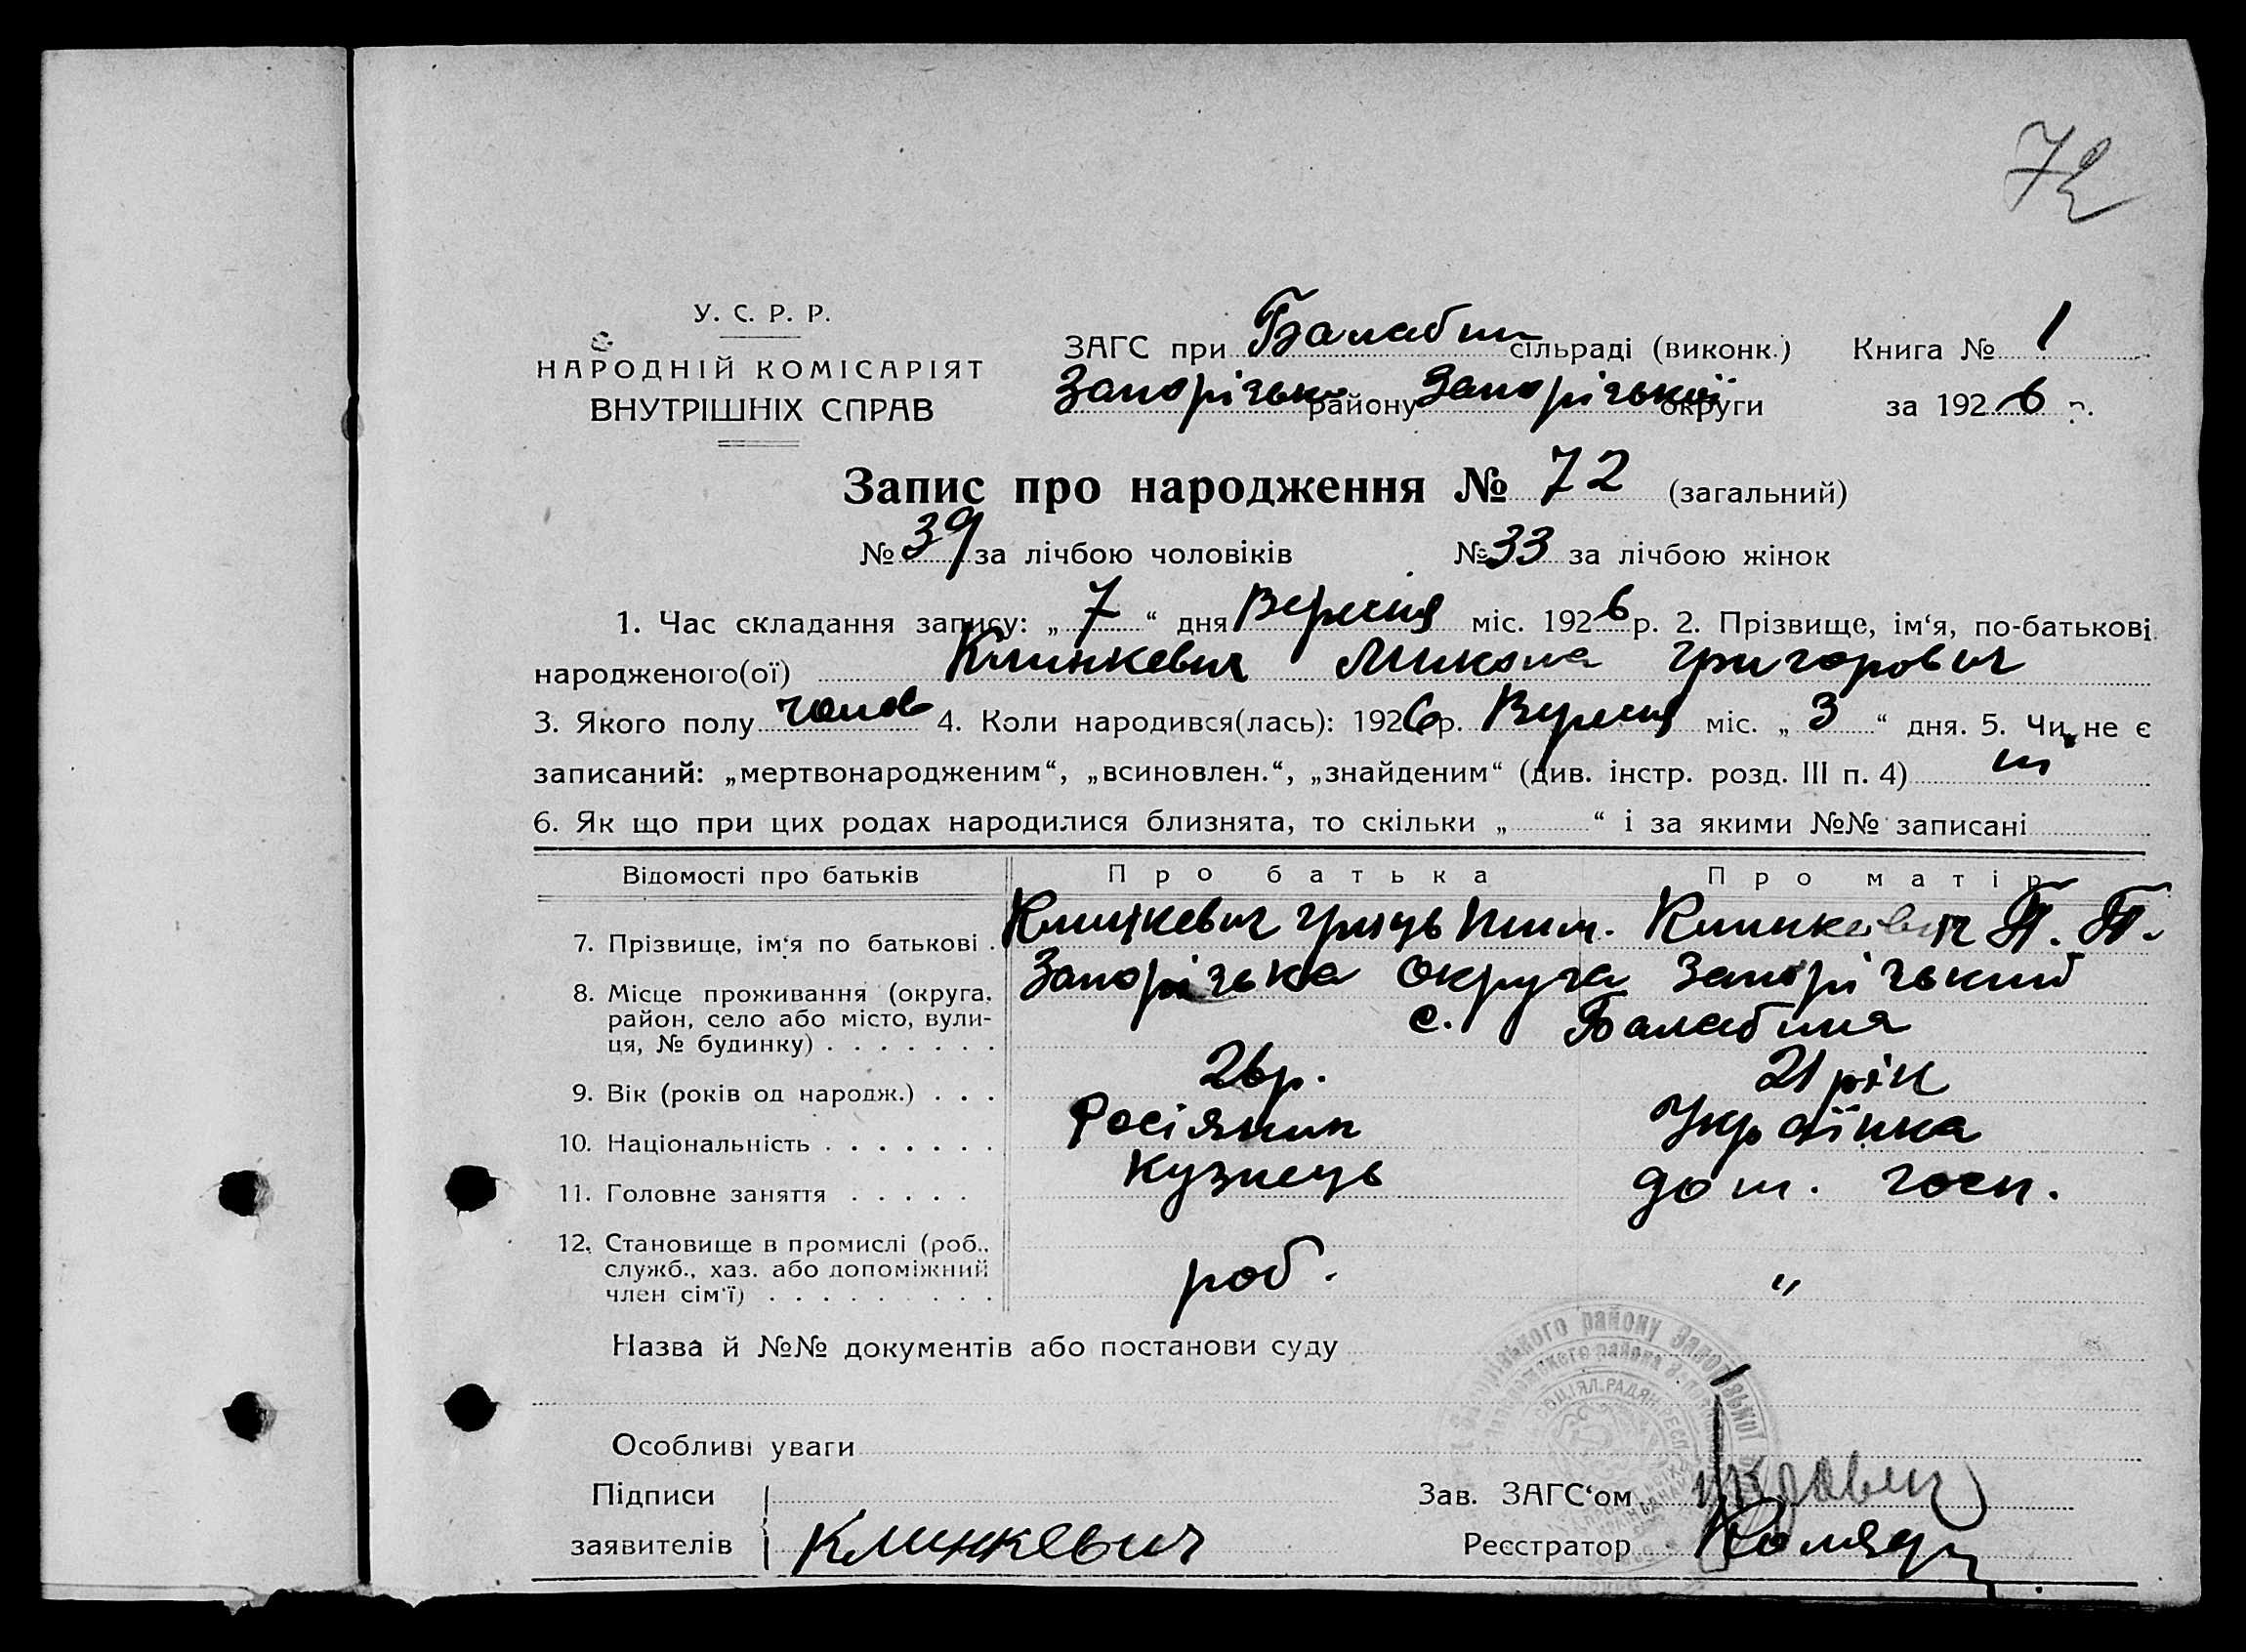 72
У. С. Р. Р.
НАРОДНІЙ КОМІСАРІЯТ
ВНУТРІШНІХ СПРАВ
ЗАГС при Балабин сільраді (виконк.) Книга № 1
Запорізьк району Запорізької округи за 1926 р.
Запис про народження № 72 (загальний)
№ 39 за лічбою чоловіків № 33 за лічбою жінок
1. Час складання запису: „ 7 “ дня Вересня міс. 1926 р. 2. Прізвище, ім‘я, по-батькові
народженого(ої) Клинкевич Микола Григорович
3. Якого полу чолов 4. Коли народився(лась): 1926 р. Вересня міс. „ 3 “ дня. 5. Чи не є
записаний: „мертвонародженим“, „всиновлен.“, „знайденим“ (див. інстр. розд. III п. 4)
6. Як що при цих родах народилися близнята, то скільки „ “ і за якими №№ записані
Відомості про батьків Про батька Про матір
7. Прізвище, ім‘я по батькові . Клинкевич Гриць Клинкевич П. П.
8. Місце проживання (округа, район, село або місто, вули-ця, № будинку) . . . . . . . Запорізька округа Запорізький
с. Балабина
9. Вік (років од народж.) . . . 26 р. 21 рік
10. Національність . . . . . . . Росіянин Українка
11. Головне заняття . . . . . Кузнець дом. госп.
12. Становище в промислі (роб., служб., хаз. або допоміжний член сім‘ї) . . . . . . . . . роб. „
Назва й №№ документів або постанови суду
Особливі уваги
Підписи
заявителів Клинкевич
Зав. ЗАГС‘ом
Реєстратор Коляд